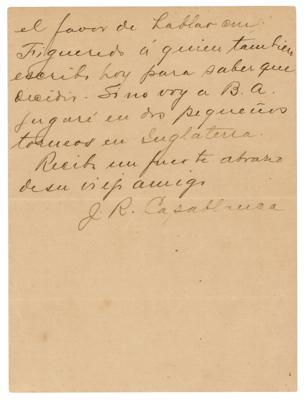 el favor de hablar con
Figueredo á quien tambien
escribo hoy para saber que
decidir. Si no voy a B.A.
jugaré en dos pequeños
torneos en Inglaterra.
Recibe un fuerte abrazo
de su viejo amigo
J. R. Capablanca